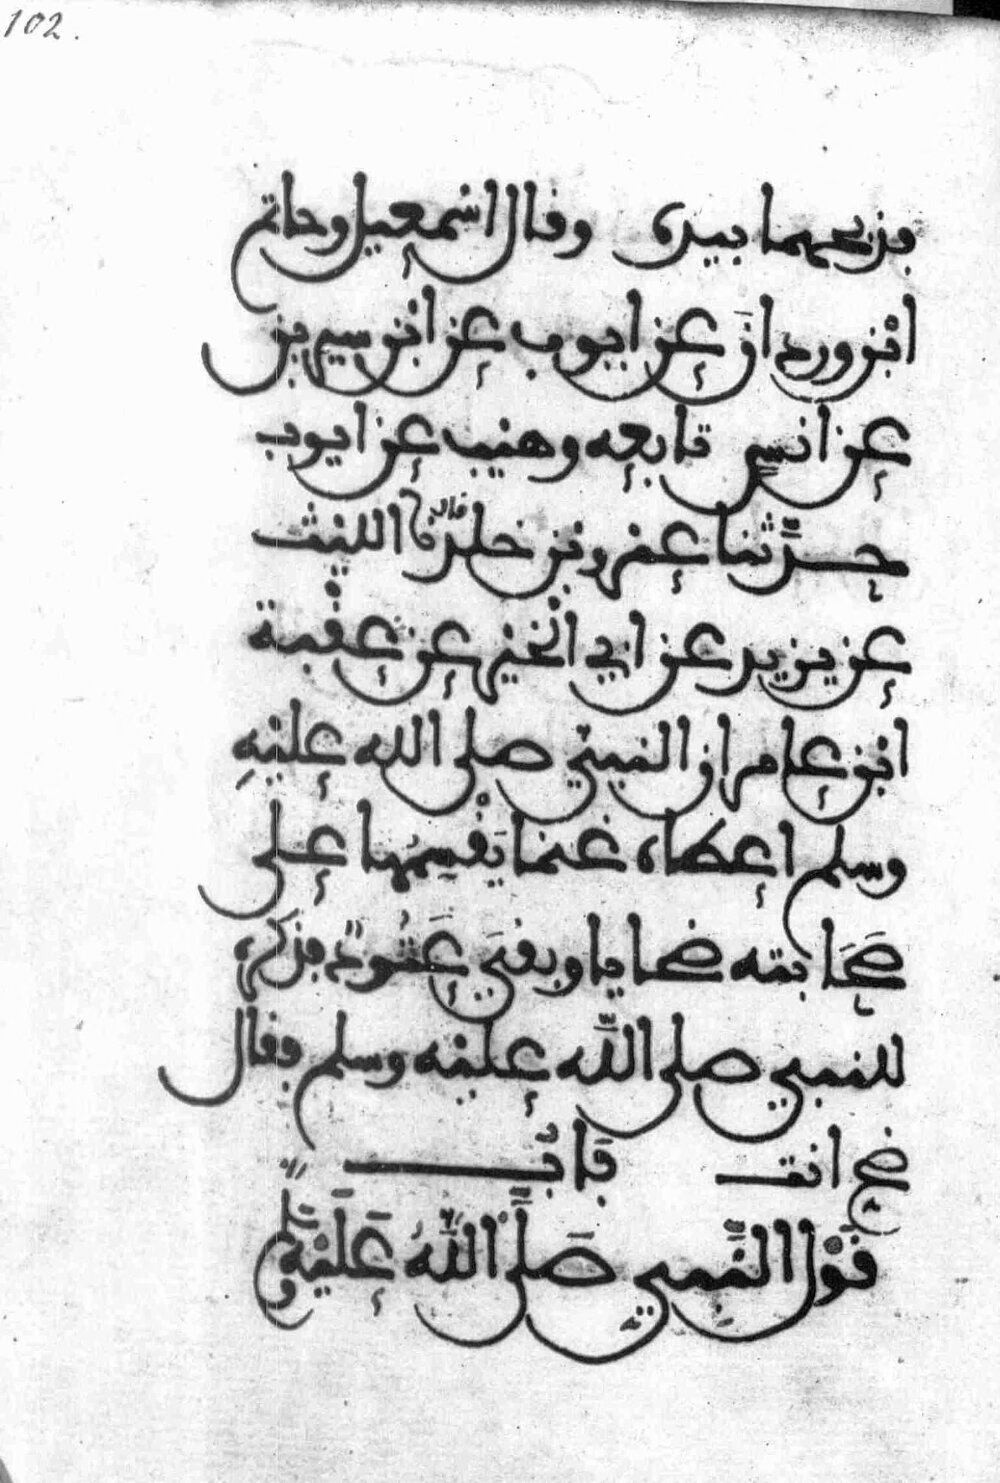 102.
فذبحهما بيده وقال اسمعيل وحاتم
ابن وردان عن ايوب عن ابن سيرين
عن انس تابعه وهيب عن ايوب
حدثنا عمرو بن خلد قال نا الليث
عن يزيد عن ابي الخير عن عقبة
ابن عامر ان النبي صلى الله عليه
وسلم اعطاه غنما يقسمها على
صحابته ضحايا وبقي عتود فذكره
للنبي صلى الله عليه وسلم فقال
ضح انت باب
قول النبي صلى الله عليه وسلم